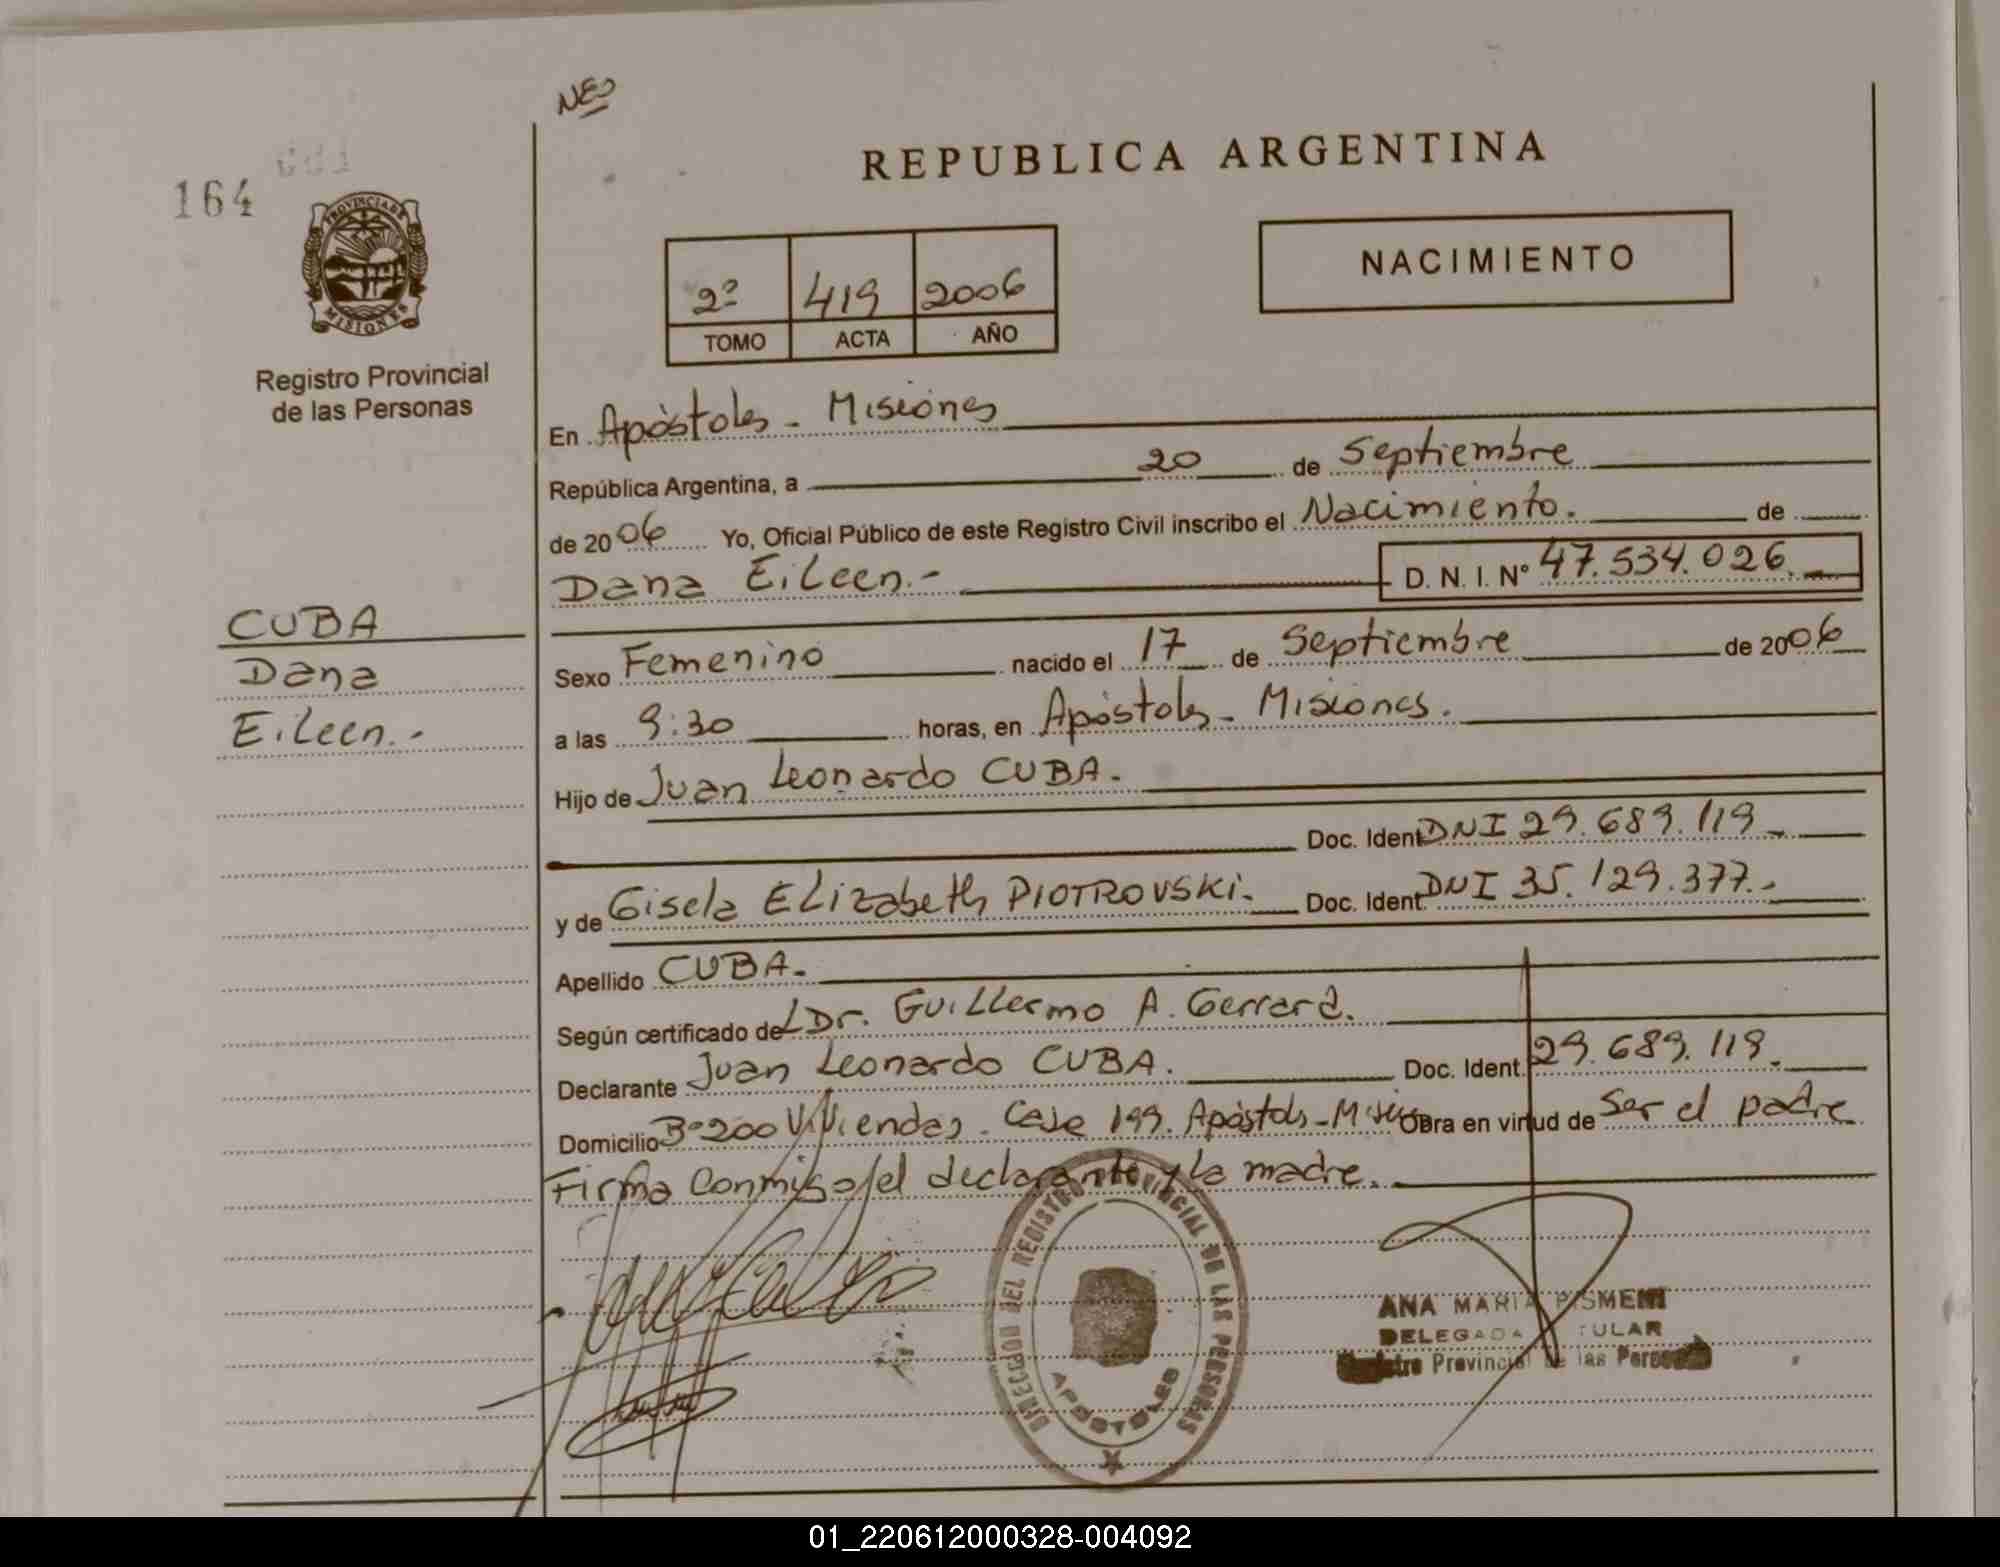 NES
REPUBLICA ARGENTINA
164
PROVINCIA DE
MISIONES
Registro Provincial
de las Personas
2º 419 2006
TOMO ACTA AÑO
NACIMIENTO
En Apóstoles - Misiones
República Argentina, a 20 de Septiembre
de 2006 Yo, Oficial Público de este Registro Civil inscribo el Nacimiento. de
Dana Eileen.- D. N. I. Nº 47.534.026.
CUBA
Dana
Eileen.-
Sexo Femenino nacido el 17 de Septiembre de 2006
a las 9:30 horas, en Apóstoles - Misiones.
Hijo de Juan Leonardo CUBA.
Doc. Ident DNI 29.689.119.
y de Gisela Elizabeth PIOTROVSKI. Doc. Ident. DNI 35.129.377.-
Apellido CUBA.
Según certificado del Dr. Guillermo A. Gerrard.
Declarante Juan Leonardo CUBA. Doc. Ident. 29.689.119.
Domicilio Bº 200 Viviendas. Casa 199. Apóstols - Mnes Obra en virtud de Ser el padre
Firma Conmigo/el declarante y la madre.
DIRECCION DEL REGISTRO PROVINCIAL DE LAS PERSONAS
APOSTOLES
ANA MARIA PISMENI
DELEGADA TITULAR
Registro Provincial de las Personas
01_220612000328-004092